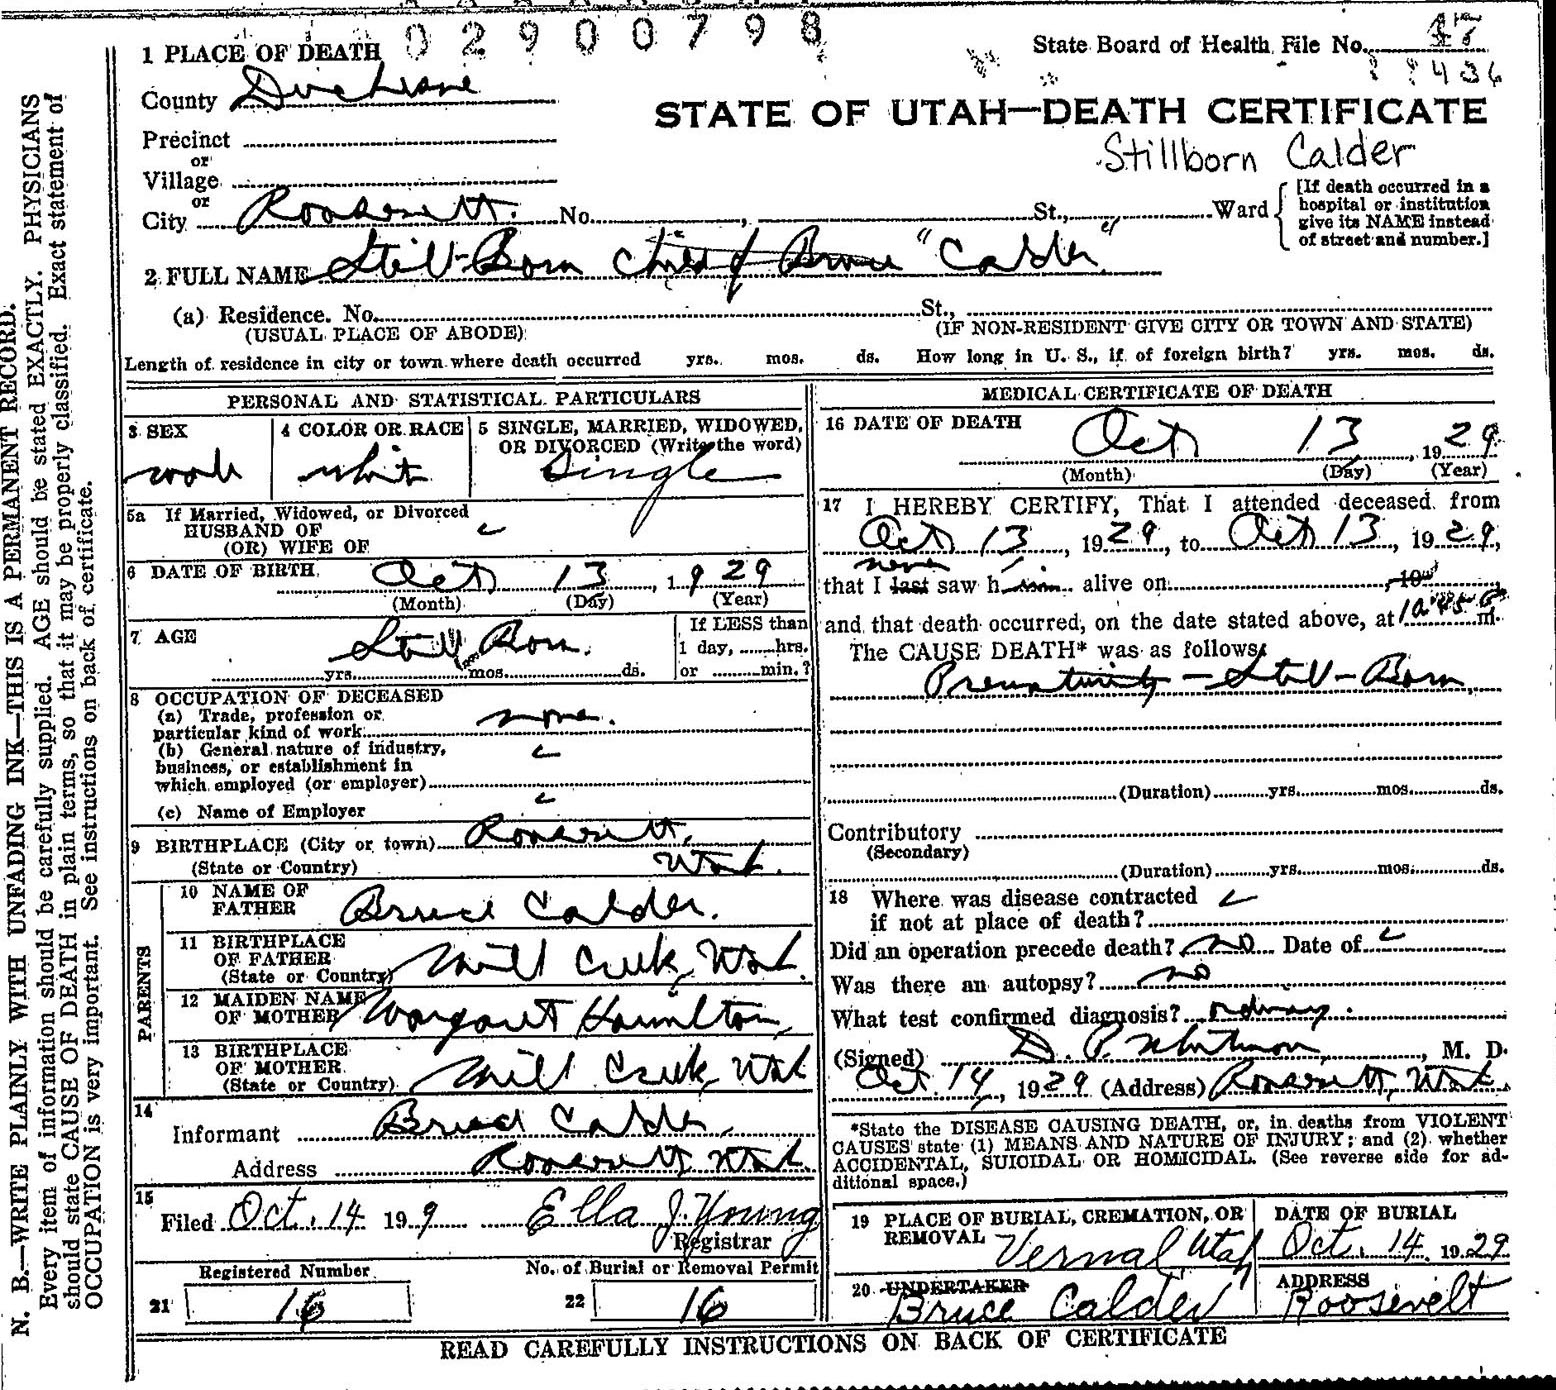 02900798
1 PLACE OF DEATH
State Board of Health File No. 47
436
County Duchesne
STATE OF UTAH—DEATH CERTIFICATE
Precinct
Stillborn Calder
or
Village
or
City Roosevelt. No. , St., Ward
[If death occurred in a
hospital or institution
give its NAME instead
of street and number.]
2 FULL NAME Still-Born Child of Bruce "Calder"
(a) Residence. No. St.,
(USUAL PLACE OF ABODE) (IF NON-RESIDENT GIVE CITY OR TOWN AND STATE)
Length of residence in city or town where death occurred yrs. mos. ds. How long in U. S., if of foreign birth? yrs. mos. ds.
PERSONAL AND STATISTICAL PARTICULARS
3 SEX
4 COLOR OR RACE
5 SINGLE, MARRIED, WIDOWED,
OR DIVORCED (Write the word)
male
white
Single
5a If Married, Widowed, or Divorced
HUSBAND OF
(OR) WIFE OF
6 DATE OF BIRTH Oct 13, 1929
(Month) (Day) (Year)
7 AGE Still Born.
yrs. mos. ds.
If LESS than
1 day, hrs.
or min.?
8 OCCUPATION OF DECEASED
(a) Trade, profession or
particular kind of work none.
(b) General nature of industry,
business, or establishment in
which employed (or employer)
(c) Name of Employer
9 BIRTHPLACE (City or town) Roosevelt,
(State or Country) Utah.
PARENTS
10 NAME OF
FATHER Bruce Calder.
11 BIRTHPLACE
OF FATHER
(State or Country) Mill Creek, Utah.
12 MAIDEN NAME
OF MOTHER Margaret Hamilton,
13 BIRTHPLACE
OF MOTHER
(State or Country) Mill Creek, Utah
14
Informant Bruce Calder,
Address Roosevelt, Utah.
15
Filed Oct. 14 19 9 Ella J. Young
Registrar
Registered Number
No. of Burial or Removal Permit
21 16
22 16
MEDICAL CERTIFICATE OF DEATH
16 DATE OF DEATH Oct 13, 1929
(Month) (Day) (Year)
17 I HEREBY CERTIFY, That I attended deceased from
Oct 13, 1929, to Oct 13, 1929,
never
that I last saw him alive on , 19
and that death occurred, on the date stated above, at m.
The CAUSE DEATH* was as follows:
Prematurity - Still-Born
(Duration) yrs. mos. ds.
Contributory
(Secondary)
(Duration) yrs. mos. ds.
18 Where was disease contracted
if not at place of death?
Did an operation precede death? no Date of
Was there an autopsy? no
What test confirmed diagnosis? ordinary.
(Signed) D. P. Whitmore, M. D.
Oct. 14, 1929 (Address) Roosevelt, Utah.
*State the DISEASE CAUSING DEATH, or, in deaths from VIOLENT
CAUSES state (1) MEANS AND NATURE OF INJURY; and (2) whether
ACCIDENTAL, SUICIDAL OR HOMICIDAL. (See reverse side for ad-
ditional space.)
19 PLACE OF BURIAL, CREMATION, OR
REMOVAL Vernal, Utah
DATE OF BURIAL
Oct. 14 1929
20 UNDERTAKER
Bruce Calder
ADDRESS
Roosevelt
READ CAREFULLY INSTRUCTIONS ON BACK OF CERTIFICATE
N. B.—WRITE PLAINLY WITH UNFADING INK—THIS IS A PERMANENT RECORD.
Every item of information should be carefully supplied. AGE should be stated EXACTLY. PHYSICIANS
should state CAUSE OF DEATH in plain terms, so that it may be properly classified. Exact statement of
OCCUPATION is very important. See instructions on back of certificate.